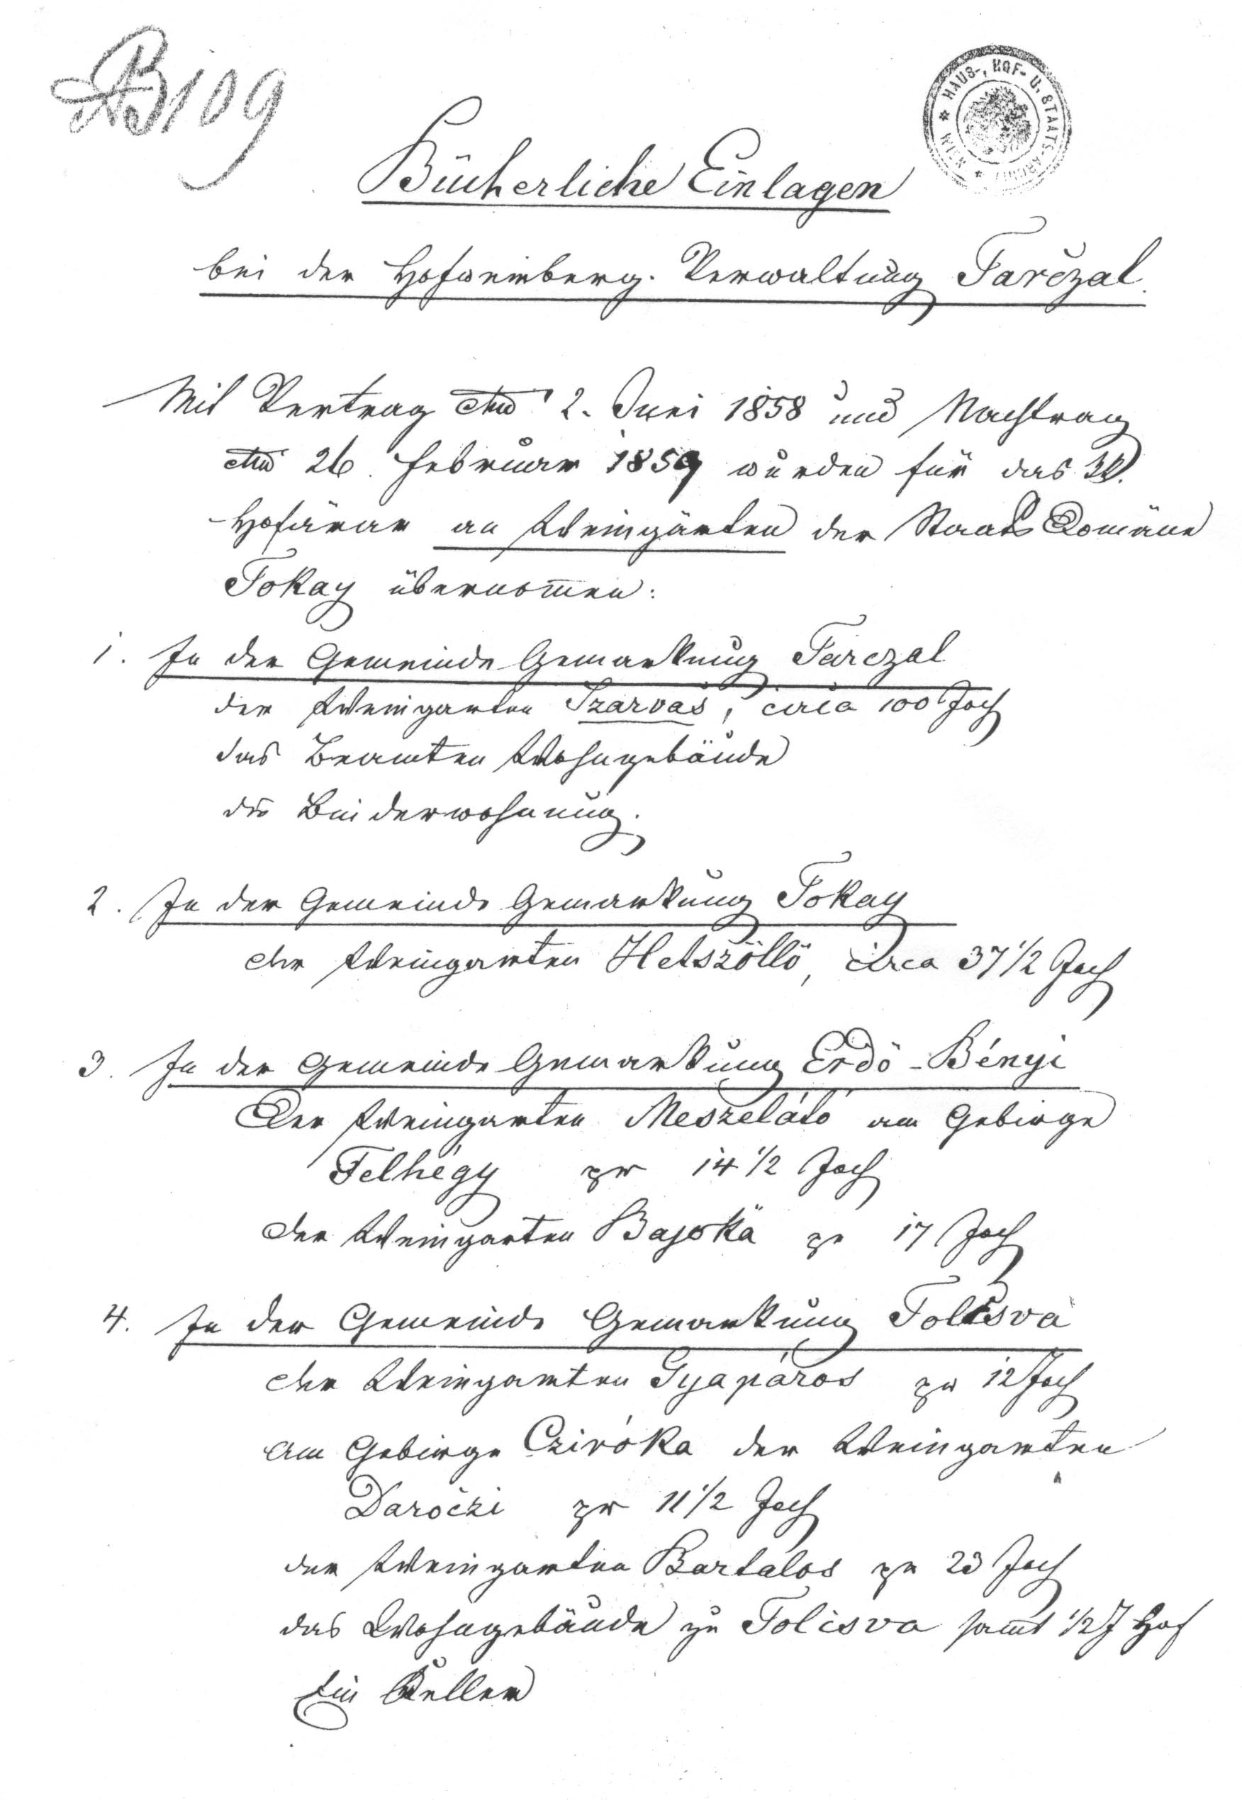 AB 109
HAUS-, HOF- U. STAATS-ARCHIV * WIEN *
Bücherliche Einlagen
bei der Hofweinberg. Verwaltung Tarczal.
Mit Vertrag dto 2. Juni 1858 und Nachtrag
dto 26. Februar 1859 wurden für das k.k.
Hofärar an Weingärten der Staats Domäne
Tokay übernom̅en:
1. In der Gemeinde Gemarkung Tarczal
der Weingarten Szarvas, circa 100 Joch
das Beamten Wohngebäude
die Binderwohnung.
2. In der Gemeinde Gemarkung Tokay
der Weingarten Hetszöllö, circa 37 1/2 Joch
3. In der Gemeinde Gemarkung Erdö-Bényi
Der Weingarten Meszelátó am Gebirge
Felhégy pr 14 1/2 Joch
der Weingarten Bajoka pr 17 Joch
4. In der Gemeinde Gemarkung Tolcsva
der Weingarten Gyapáros pr 12 Joch
am Gebirge Cziróka der Weingarten
Daróczi pr 11 1/2 Joch
der Weingarten Bartalos pr 23 Joch
das Wohngebäude zu Tolcsva sam̅t 1/2 J Hof
Ein Keller